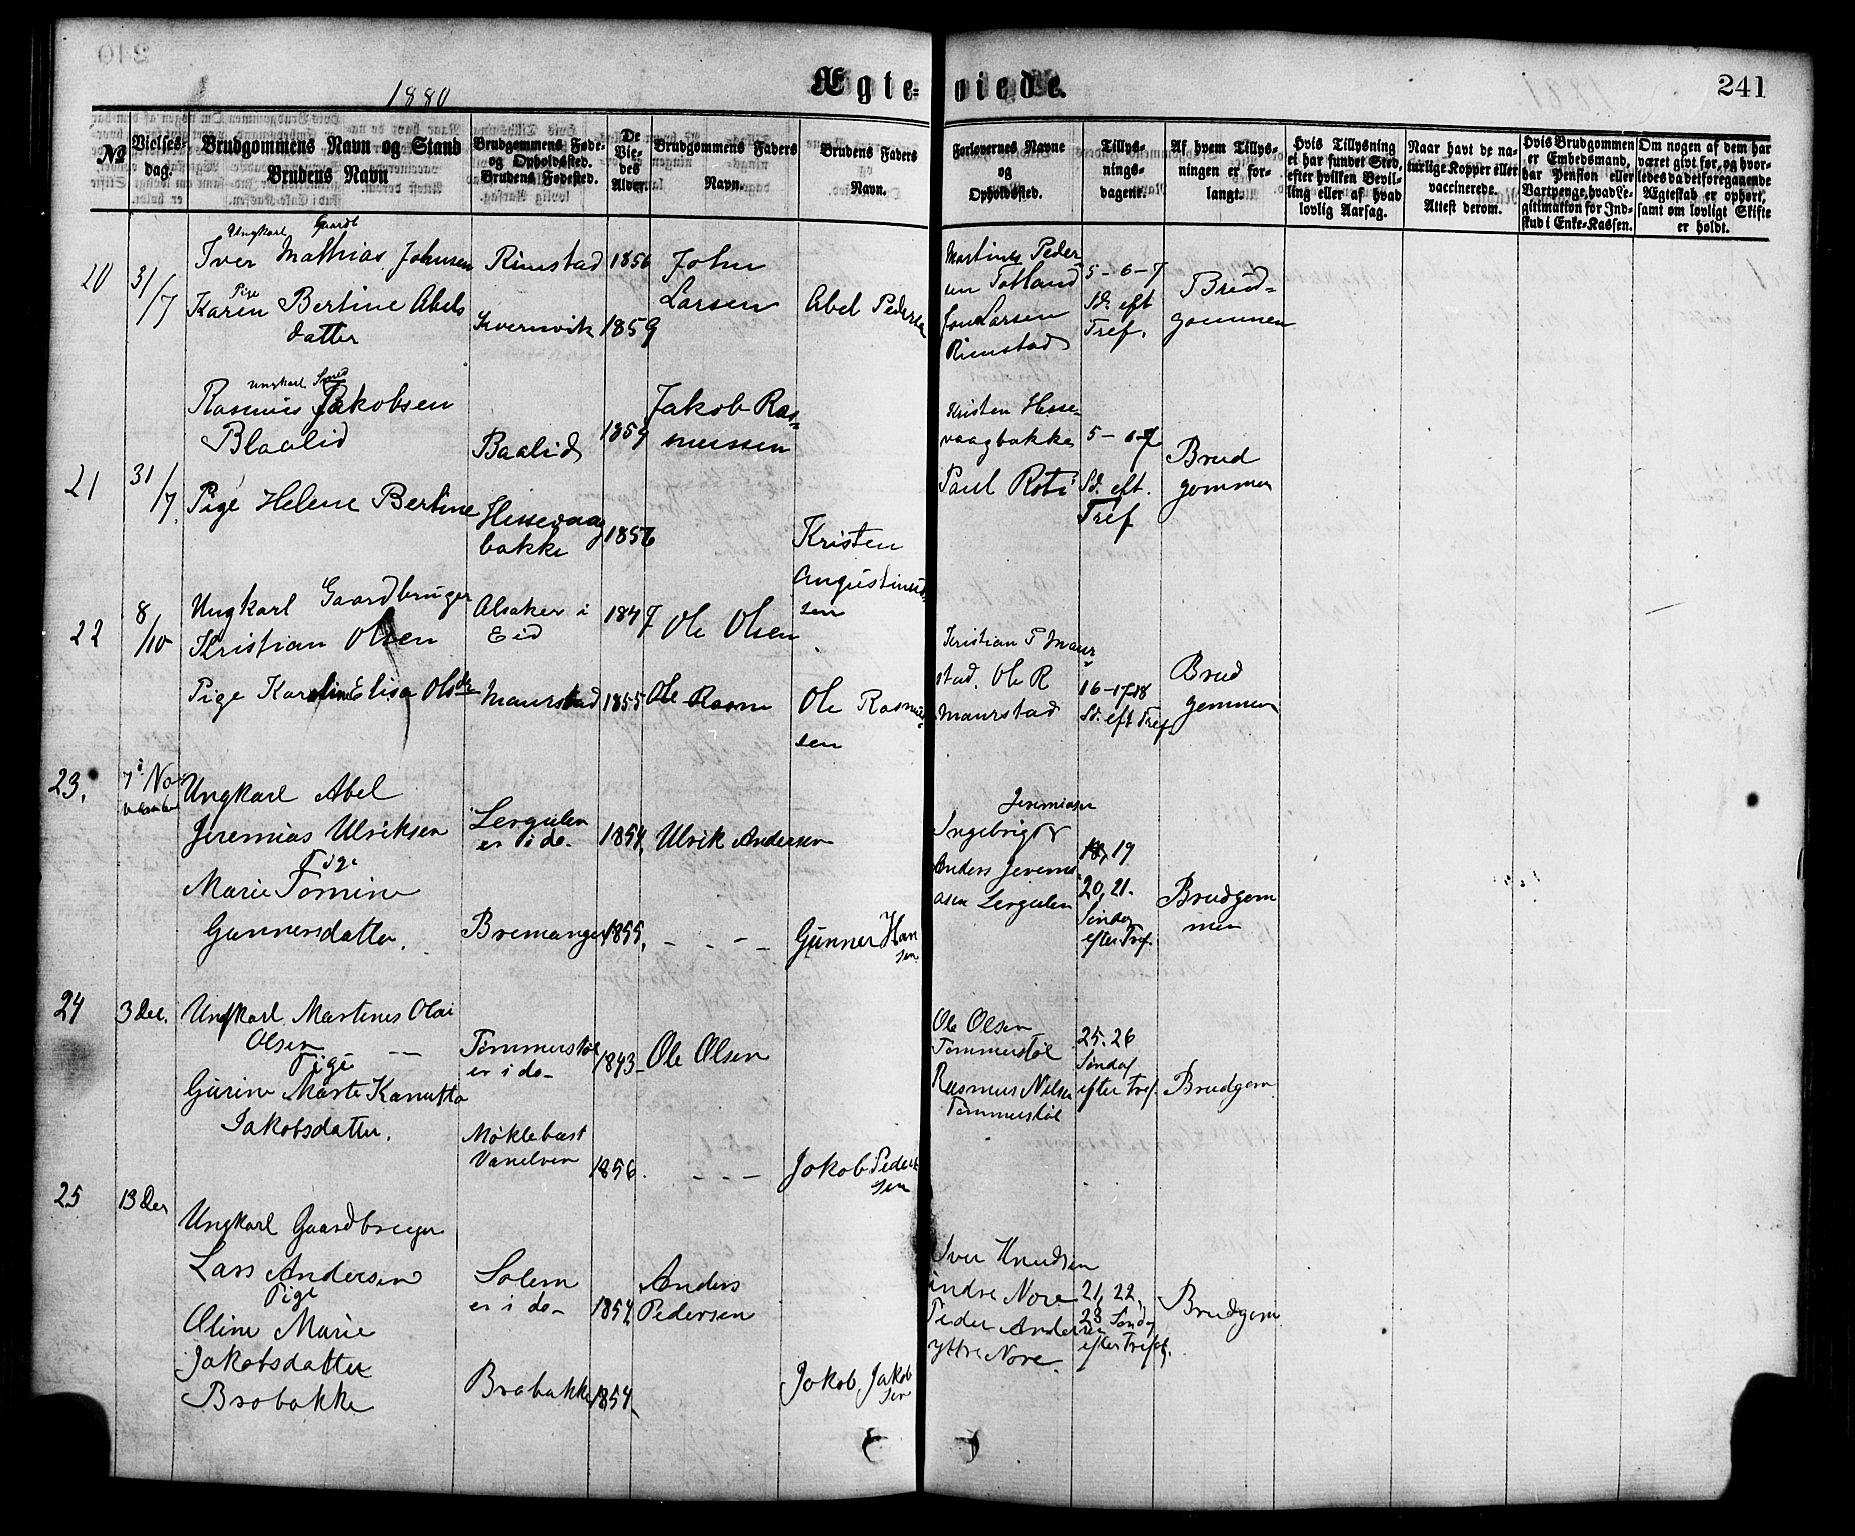 1880
Ægte-
viede.
241
№
Vielses-
dag.
Brudgommens Navn og Stand
Brudens Navn
Brudgommens Føde-
og Opholdssted.
Brudens Fødested.
De
Vie-
des
Alder.
Brudgommens Faders
Navn.
Brudens Faders
Navn.
Forlovernes Navne
og
Opholdssted.
Tillys-
nings-
dagene.
Af hvem Tillys-
ningen er for-
langt.
Hvis Tillysning
ei har fundet Sted,
efter hvilken Bevil-
ling eller af hvad
lovlig Aarsag.
Naar havt de na-
turlige Kopper eller
vaccinerede.
Attest derom.
Hvis Brudgommen
er Embedsmand,
har Pension eller
Vartpenge, hvad Le-
gitimation for Ind-
skud i Enke-Kassen.
Om nogen af dem har
været givt før, og hvor-
ledes da det foregaaende
Ægteskab er ophørt,
samt om lovligt Skifte
er holdt.
20
31/7
Ungkarl Gaardb
Iver Mathias Johnsen
Pige
Karen Bertine Abels
datter
Rimstad
Kvernvik
1856
1859
John
Larsen
Abel Pedersen
Martinus Peder
sen Totland
Jon Larsen
Rimstad
5-6-7
Sd. eft
Tref.
Brud-
gommen
21
31/7
Ungkarl Smed
Rasmus Jakobsen
Blaalid
Pige Helene Bertine
Baalid
Hessevaag
bakke
1859
1856
Jakob Ras-
mussen
Kristen
Augustinus
sen
Kristen Hesse-
vaagbakke
Paul Roti
5-6-7
Sd. eft.
Tref
Brud
gommen
22
8/10
Ungkarl Gaardbruger
Kristian Olsen
Pige Karoline Elisa Olsdtr
Alsaker i
Eid
Maurstad
1847
1855
Ole Olsen
Ole Rasm
Ole Rasmus-
sen
Kristian P Maur
stad, Ole R
Maurstad
16-17-18
Sd. eft Tref
Brud
gommen
23.
7de No-
vember
Ungkarl Abel
Jeremias Ulriksen
Pige
Marie Tomine
Gunnersdatter.
Lergulen
er i do-
Bremanger
1854.
1855.
Ulrik Andersen
Gunner Han
sen
Jeremiasen
Ingebrigt
Anders Jeremi
asen Lergulen
18, 19
20, 21.
Søndag
efter Tref.
Brudgom
men
24
3 Dec.
Ungkarl Martinus Olai
Olsen
Pige
Gurine Marte Kanutta
Jakobsdatter.
Tømmerstøl
er i do-
Møklebust
Vanelven
1843-
1856.
Ole Olsen
Jakob Peder
sen
Ole Olsen
Tømmerstøl
Rasmus Nilsen
Tømmerstøl
25. 26
Søndag
efter Tref.
Brudgom
25
13 Dec
Ungkarl Gaardbruger
Lars Andersen
Pige
Oline Marie
Jakobsdatter
Brobakke
Solem
er i do-
Brobakke
1854
1854
Anders
Pedersen
Jakob Jakob
sen
Iver Knudsen
indre Nore
Peder Andersen
yttre Nore
21, 22,
23 Sønd.
efter Treft.
Brudgom